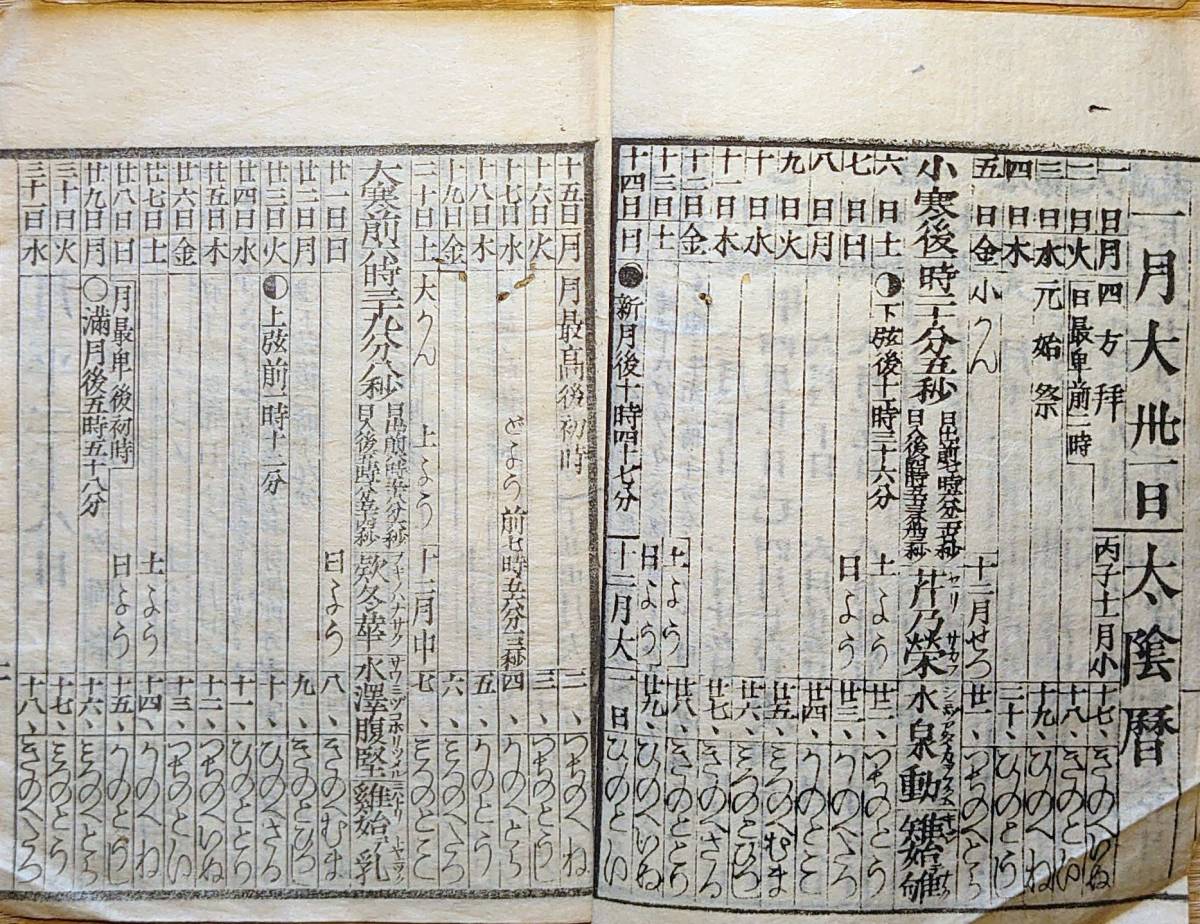 一月大卅一日 太陰暦
一日月 四方拜 丙子十一月小 十七、 きのへいぬ
二日火 日最卑前一時 十八、 きのとゐ
三日水 元始祭 十九、 ひのへね
四日木 二十、 ひのとうし
五日金 小かん 十二月せつ 廿一、 つちのへとら
小寒後一時二十分五秒 芹乃榮 水泉動 雉始雊
六日土 下弦後十一時三十六分 土よう 廿二、 つちのとう
七日日 日よう 廿三、 かのへたつ
八日月 廿四、 かのとみ
九日火 廿五、 みつのへむま
十日水 廿六、 みつのとひつし
十一日木 廿七、 きのへさる
十二日金 廿八、 きのととり
十三日土 土よう 廿九、 ひのへいぬ
十四日日 新月後十時四十七分 日よう 十二月大 一日 ひのとゐ
十五日月 月最高後初時 二、 つちのへね
十六日火 三、 つちのとうし
十七日水 どよう 四、 かのへとら
十八日木 五、 かのとう
十九日金 六、 みつのへたつ
二十日土 大かん 土よう 十二月中 七、 みつのとみ
大寒前八時三十九分八秒 欵冬華 水澤腹堅 雞始乳
廿一日日 日よう 八、 きのへむま
廿二日月 九、 きのとひつし
廿三日火 上弦前一時十二分 十、 ひのへさる
廿四日水 十一、 ひのととり
廿五日木 十二、 つちのへいぬ
廿六日金 十三、 つちのとゐ
廿七日土 土よう 十四、 かのへね
廿八日日 月最卑後初時 日よう 十五、 かのとうし
廿九日月 滿月後五時五十八分 十六、 みつのへとら
三十日火 十七、 みつのとう
三十一日水 十八、 きのへたつ